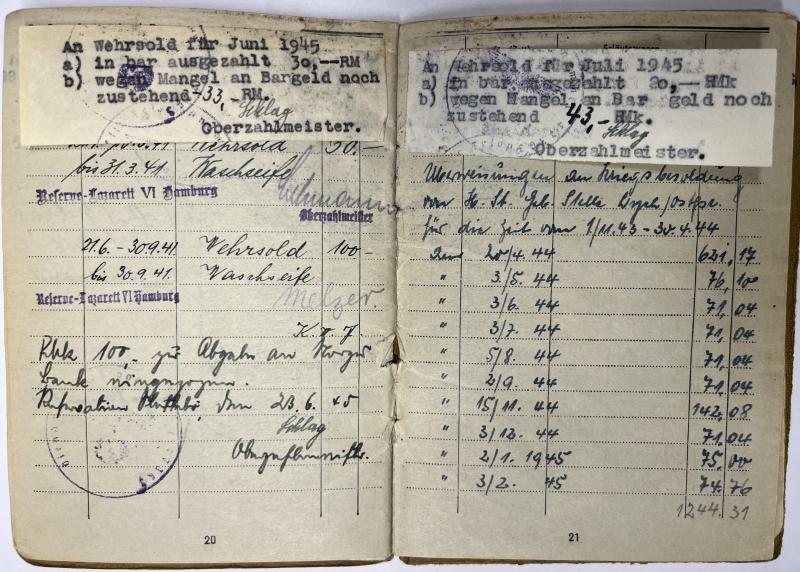 An Wehrsold für Juni 1945
a) in bar ausgezahlt 30,--RM
b) wegen Mangel an Bargeld noch
zustehend -33,- RM.
Schlag
Oberzahlmeister.
Wehrsold 50.-
bis 31.3.41 Waschseife
Reserve-Lazarett VI Hamburg
Oberzahlmeister
21.6. - 30.9.41. Wehrsold 100-
bis 30.9.41. Waschseife
Reserve-Lazarett VI Hamburg
Melzer.
100.- zur Abgabe an
bank eingezogen.
den 23.6. 45
Schlag
20
An Wehrsold für Juli 1945
a) in bar ausgezahlt 20,-- RMk
b) wegen Mangel an Bar geld noch
zustehend 43,- RMk.
Schlag
Oberzahlmeister.
Überweisungen an Kriegsbesoldung
von H. St. Geb. Stelle
für die Zeit vom 1/11.43 - 30.4.44
20/4. 44 621,17
" 3/5. 44 76,10
" 3/6. 44 71,04
" 3/7. 44 71,04
" 5/8. 44 71,04
" 2/9. 44 71,04
" 15/11. 44 142,08
" 3/12. 44 71,04
" 2/1. 1945 75,00
" 3/2. 45 74,76
1244.31
21